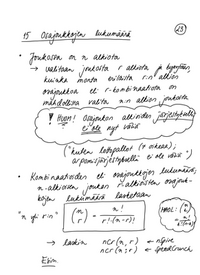 23
15 Osajoukkojen lukumäärä
• Joukossa on n alkiota
→ valitaan joukosta r alkiota ja kysytään,
kuinka monta erilaista r:n alkion
osajoukkoa eli r-kombinaatiota on
mahdollista valita n:n alkion joukosta
! Huom! Osajoukon alkioiden järjestyksellä
ei ole nyt väliä
("kuten lottopallot 7 oikeaa;
arpomisjärjestyksellä ei ole väliä")
• Kombinaatioiden eli osajoukkojen lukumäärä,
n-alkioisen joukon r-alkioisten osajouk-
kojen lukumäärä lasketaan
"n yli r:n" (n r) = n! / r!·(n-r)!
→ laskin ncr(n,r) ← nspire
ncr(n;r) ← SpeedCrunch
Esim